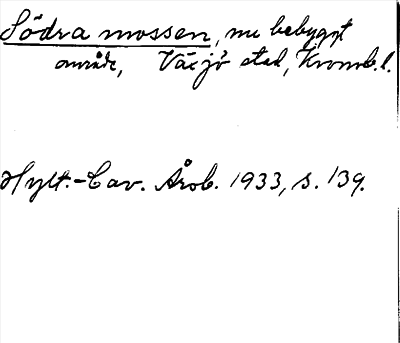 Södra mossen, nu bebyggt
område, Växjö stad, Kronob. l.
Hylt.-Cav. Årsb. 1933, s. 139.